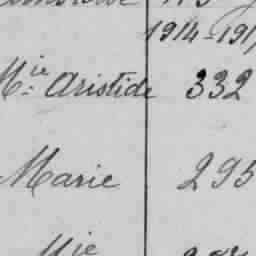 1914-191
Mie Aristide 332
Marie 295
Mie